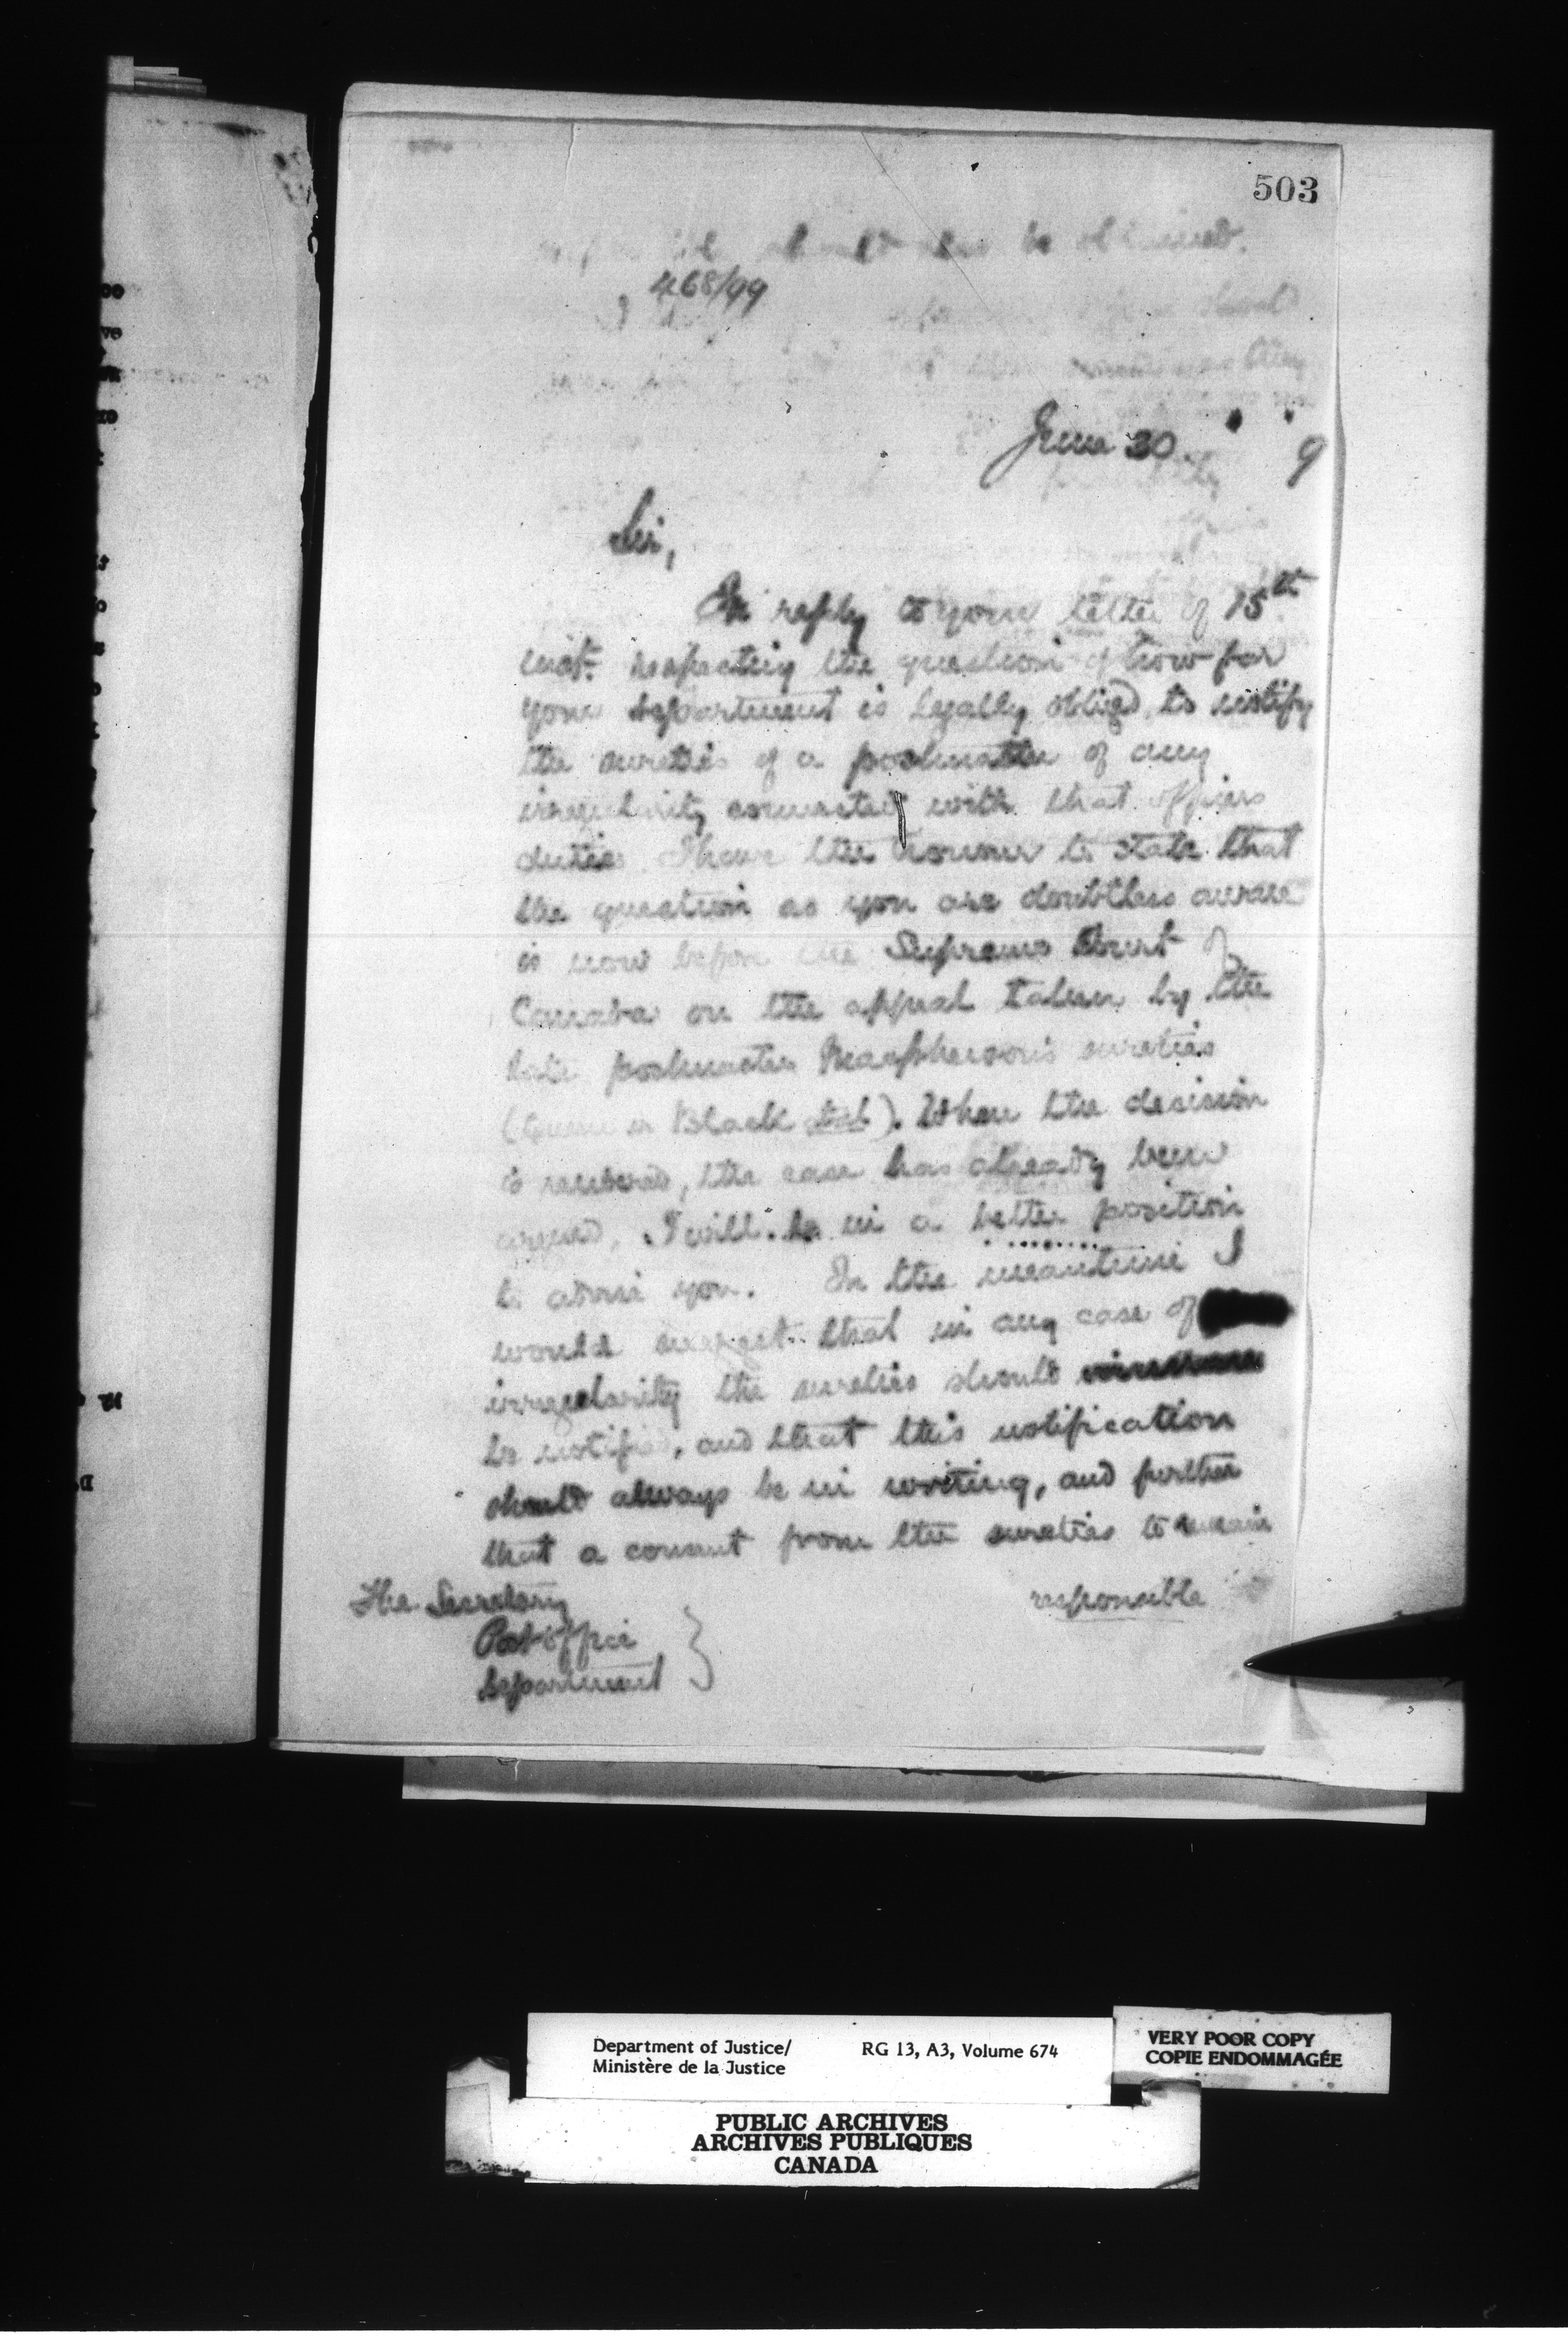 503
468/99
June 30. " " 9
Sir,
In reply to your letter of 15th
inst. respecting the question of how far
your Department is legally obliged to notify
the sureties of a postmaster of any
irregularity connected with that officers
duties I have the honour to state that
the question as you are doubtless aware
is now before the Supreme Court of
Canada on the appeal taken by the
late postmaster sureties
(Queen v Black et al). When the decision
is rendered, the case has already been
argued, I will be in a better position
to advise you. In the meantime I
would suggest that in any case of
irregularity the sureties should
be notified, and that this notification
should always be in writing, and further
that a consent from the sureties to remain
responsible
The Secretary
Post office
Department
Department of Justice/
Ministère de la Justice
RG 13, A3, Volume 674
VERY POOR COPY
COPIE ENDOMMAGÉE
PUBLIC ARCHIVES
ARCHIVES PUBLIQUES
CANADA